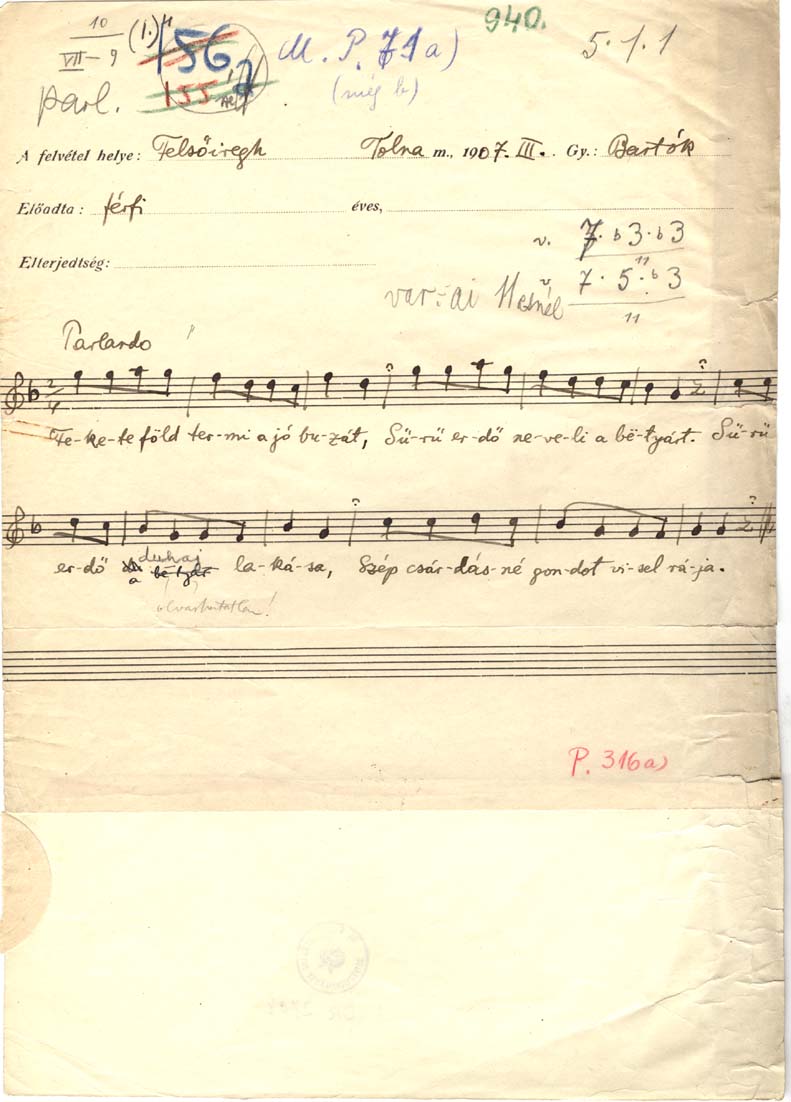 10
VII-9
(1.)
156
155
M. P. 71a)
(még b)
940.
5.1.1
parl.
A felvétel helye: Felsőiregh Tolna m., 1907. III. Gy.: Bartók
Előadta: férfi éves,
v. 7. b3. b3
Elterjedtség:
11
v 7. 5. b3
11
var:ai
Parlando
2/4
Fe-ke-te föld ter-mi a jó bu-zát, Sű-rű er-dő ne-ve-li a bë-tyárt. Sű-rű
er-dő a duhaj la-ká-sa, Szép csár-dás-né gon-dot vi-sel rá-ja.
olvashatatlan!
P. 316a)